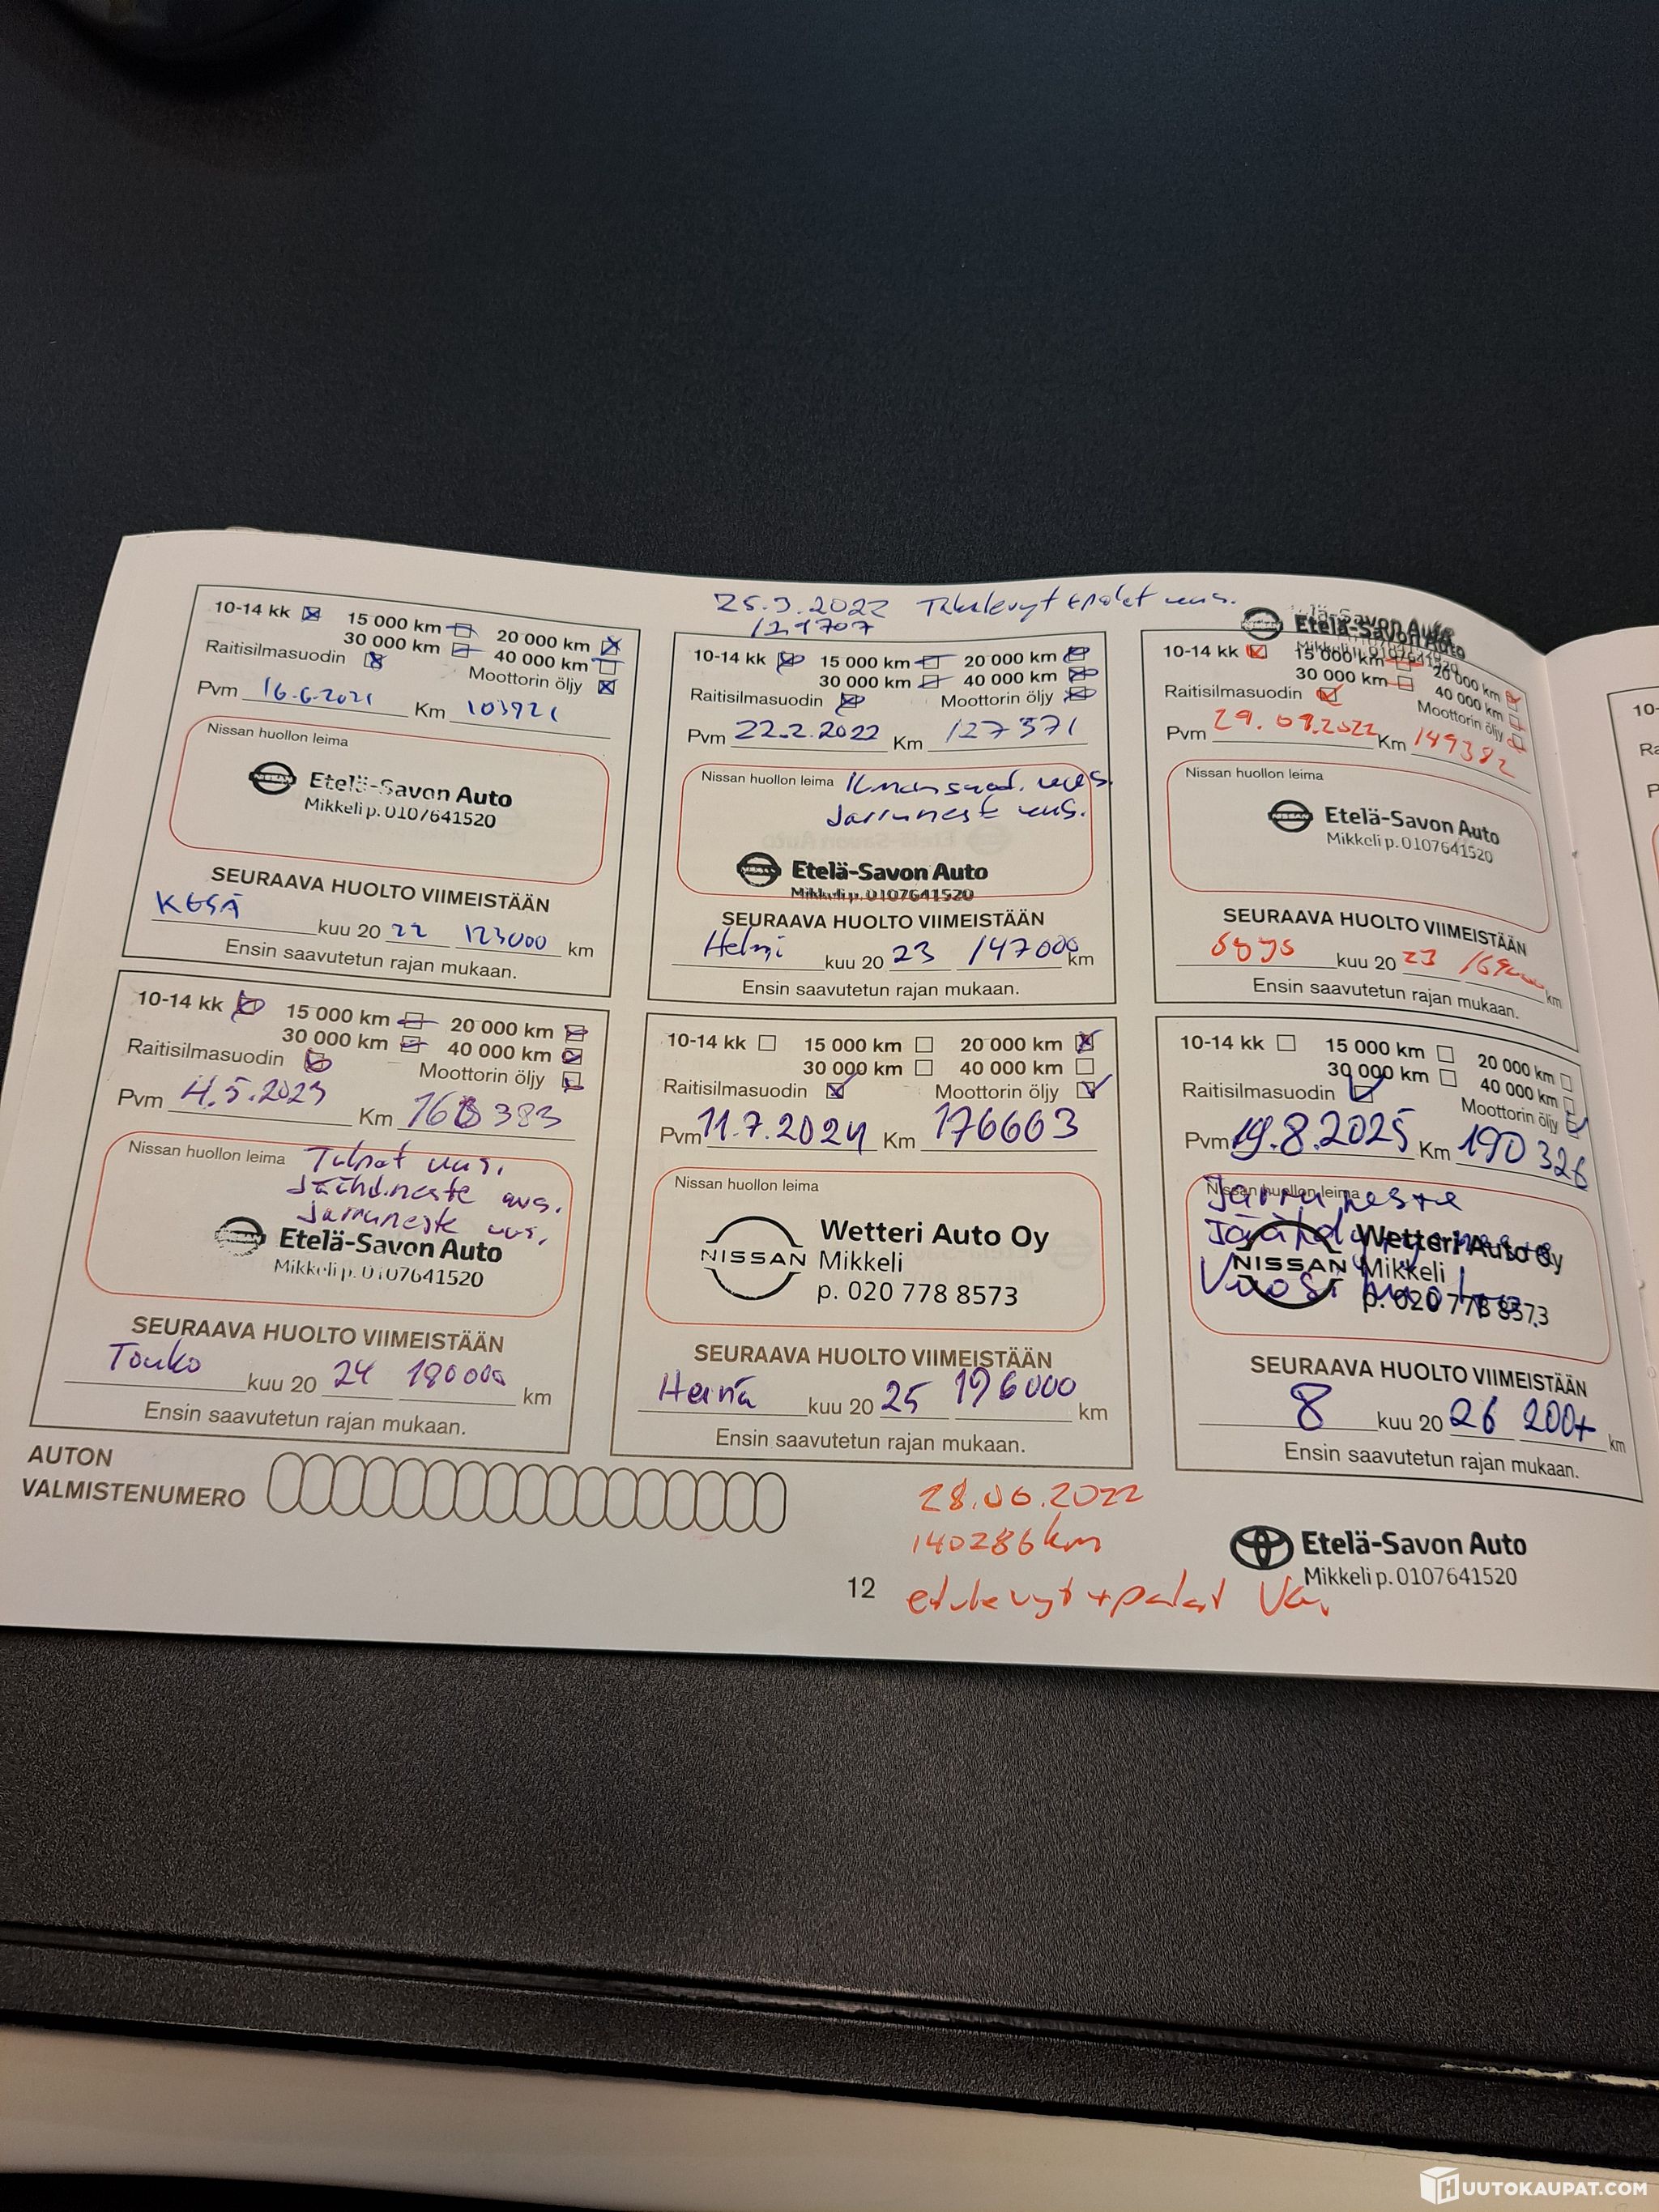 25.3.2022 Takalevyt + palat uus.
121707
Etelä-Savon Auto
Mikkeli p. 0107641520
10-14 kk 15 000 km 20 000 km
30 000 km 40 000 km
Raitisilmasuodin Moottorin öljy
Pvm 16.6.2021 Km 103921
Nissan huollon leima
Etelä-Savon Auto
Mikkeli p. 0107641520
SEURAAVA HUOLTO VIIMEISTÄÄN
KESÄ kuu 20 22 123000 km
Ensin saavutetun rajan mukaan.
10-14 kk 15 000 km 20 000 km
30 000 km 40 000 km
Raitisilmasuodin Moottorin öljy
Pvm 22.2.2022 Km 127371
Nissan huollon leima Ilmansuod. uus.
Jarruneste uus.
NISSAN Etelä-Savon Auto
Mikkeli p. 0107641520
SEURAAVA HUOLTO VIIMEISTÄÄN
Helmi kuu 20 23 147000 km
Ensin saavutetun rajan mukaan.
10-14 kk 15 000 km 20 000 km
30 000 km 40 000 km
Raitisilmasuodin Moottorin öljy
Pvm 29.09.2022 Km 149382
Nissan huollon leima
NISSAN Etelä-Savon Auto
Mikkeli p. 0107641520
SEURAAVA HUOLTO VIIMEISTÄÄN
Syys kuu 20 23 km
Ensin saavutetun rajan mukaan.
10-14 kk 15 000 km 20 000 km
30 000 km 40 000 km
Raitisilmasuodin Moottorin öljy
Pvm 4.5.2023 Km
Nissan huollon leima Tulpat uus.
Jäähd.neste uus.
Jarruneste uus.
Etelä-Savon Auto
Mikkeli p. 0107641520
SEURAAVA HUOLTO VIIMEISTÄÄN
Touko kuu 20 24 180000 km
Ensin saavutetun rajan mukaan.
10-14 kk 15 000 km 20 000 km
30 000 km 40 000 km
Raitisilmasuodin Moottorin öljy
Pvm 11.7.2024 Km 176603
Nissan huollon leima
NISSAN
Wetteri Auto Oy
Mikkeli
p. 020 778 8573
SEURAAVA HUOLTO VIIMEISTÄÄN
Heinä kuu 20 25 196000 km
Ensin saavutetun rajan mukaan.
10-14 kk 15 000 km 20 000 km
30 000 km 40 000 km
Raitisilmasuodin Moottorin öljy
Pvm 19.8.2025 Km 190326
Nissan huollon leima
Jarruneste
NISSAN
Wetteri Auto Oy
Mikkeli
p. 020 778 8573
Vuosihuolto
SEURAAVA HUOLTO VIIMEISTÄÄN
8 kuu 20 26 200+ km
Ensin saavutetun rajan mukaan.
AUTON
VALMISTENUMERO
28.06.2022
140286km
etulevyt + palat
12
Etelä-Savon Auto
Mikkeli p. 0107641520
10-
HUUTOKAUPAT.COM